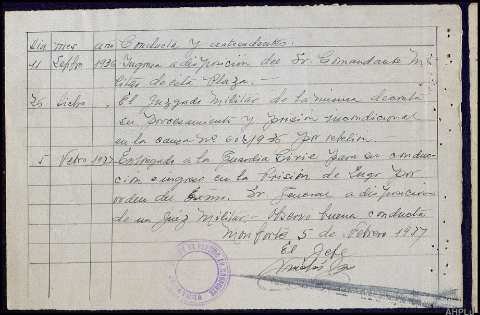 Dia mes año Conducta y antecedentes.
11 Sepbre 1936 Ingresa a disposición del Sr. Comandante Mi-
litar de esta Plaza. —
26 Dicbre El Juzgado Militar de la misma decreta
su procesamiento y prisión incondicional
en la causa nº 604/936 por rebelión.
5 Febro 1937 Entregado a la Guardia Civil para su conduc-
ción e ingreso en la Prisión de Lugo por
orden del Excmo. Sr. General a disposición
de un Juez Militar. — Observó buena conducta
Monforte 5 de Febrero 1937
El Jefe
AHPLu